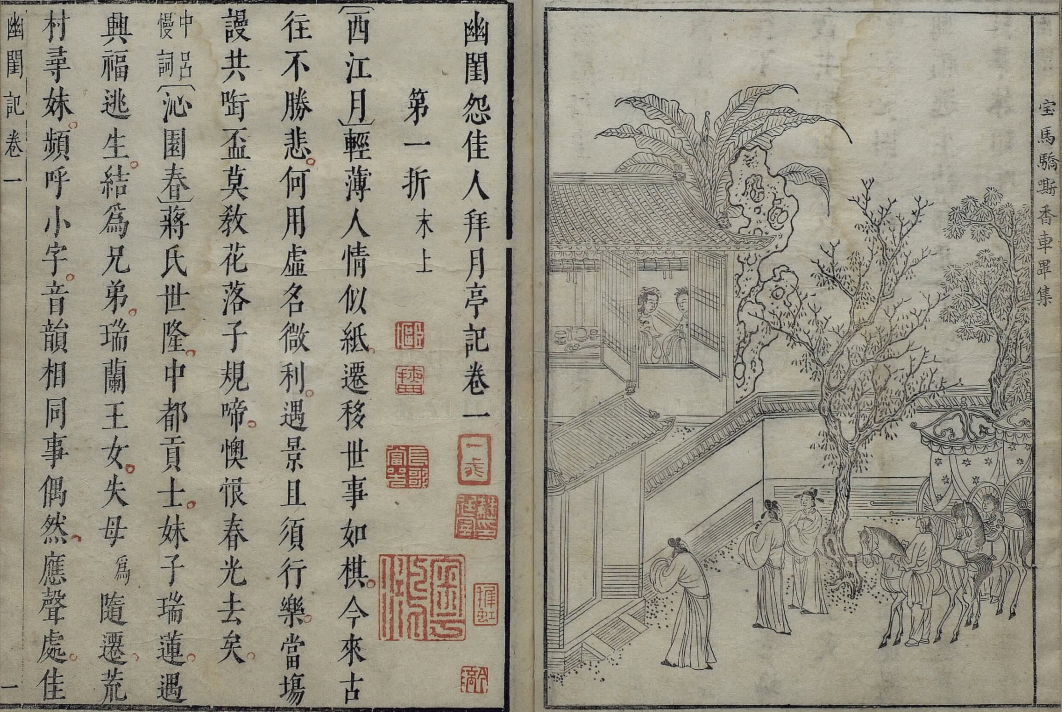 宝馬驕嘶香車畢集
幽閨怨佳人拜月亭記卷一
第一折 末上
〔西江月〕輕薄人情似紙。遷移世事如棋。今來古
往不勝悲。何用虛名微利。遇景且須行樂。當塲
謾共啣盃莫教花落子規啼。懊恨春光去矣。
中呂慢詞〔沁園春〕蔣氏世隆。中都貢士。妹子瑞蓮。遇
興福逃生。結爲兄弟。瑞蘭王女。失母爲隨遷。荒
村尋妹。頻呼小字。音韻相同事偶然。應聲處。佳
幽閨記卷一 一